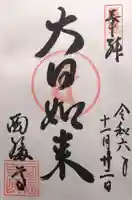 奉拝
令和六年
十一月廿一日
大日如来
寺